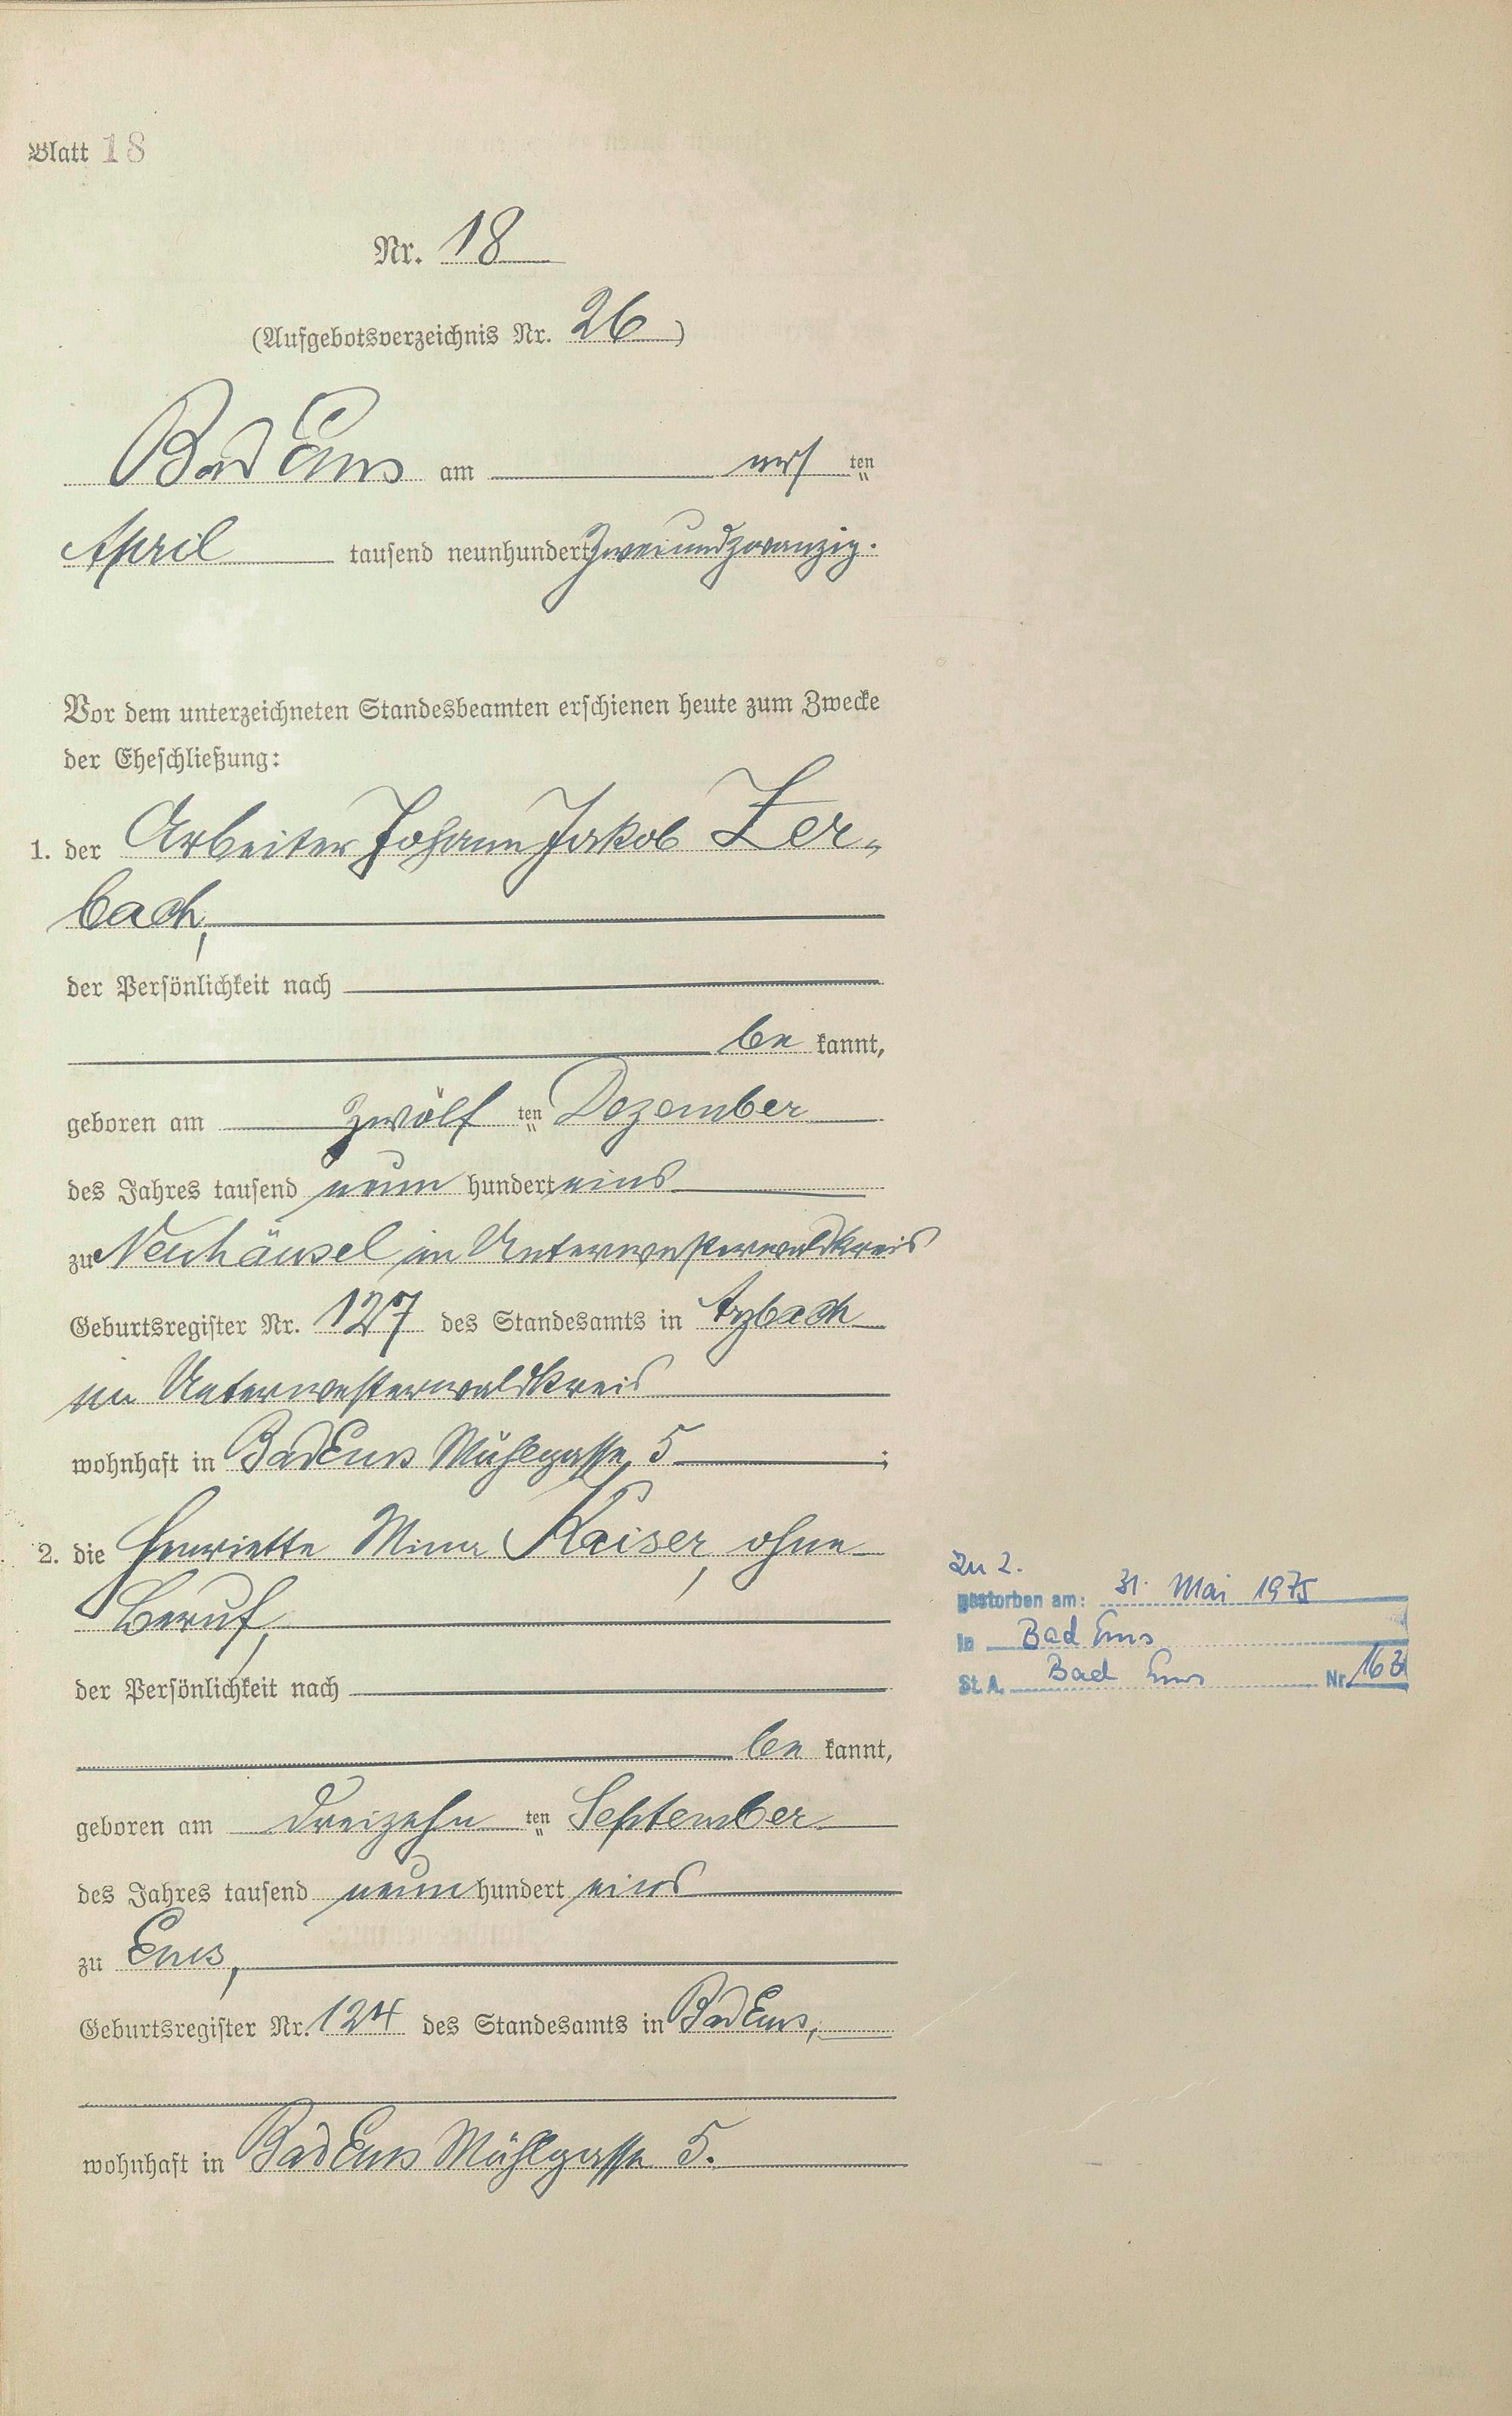 Blatt 18
Nr. 18
(Aufgebotsverzeichnis Nr. 26)
Bad Ems am ers ten
April tausend neunhundert zweiundzwanzig.
Vor dem unterzeichneten Standesbeamten erschienen heute zum Zwecke
der Eheschließung:
1. der Arbeiter Johann Jakob Zer-
bach,
der Persönlichkeit nach
be kannt,
geboren am zwölf ten Dezember
des Jahres tausend neun hundert eins
zu Neuhäusel im Unterwesterwaldkreis
Geburtsregister Nr. 127 des Standesamts in Arzbach
im Unterwesterwaldkreis
wohnhaft in Bad Ems Mühlgasse 5 ;
2. die Henriette Mina Kaiser, ohne
Beruf,
der Persönlichkeit nach
be kannt,
geboren am dreizehn ten September
des Jahres tausend neun hundert eins
zu Ems,
Geburtsregister Nr. 124 des Standesamts in Bad Ems,
wohnhaft in Bad Ems Mühlgasse 5.
Zu 2.
gestorben am: 31. Mai 1975
in Bad Ems
St. A. Bad Ems Nr. 163